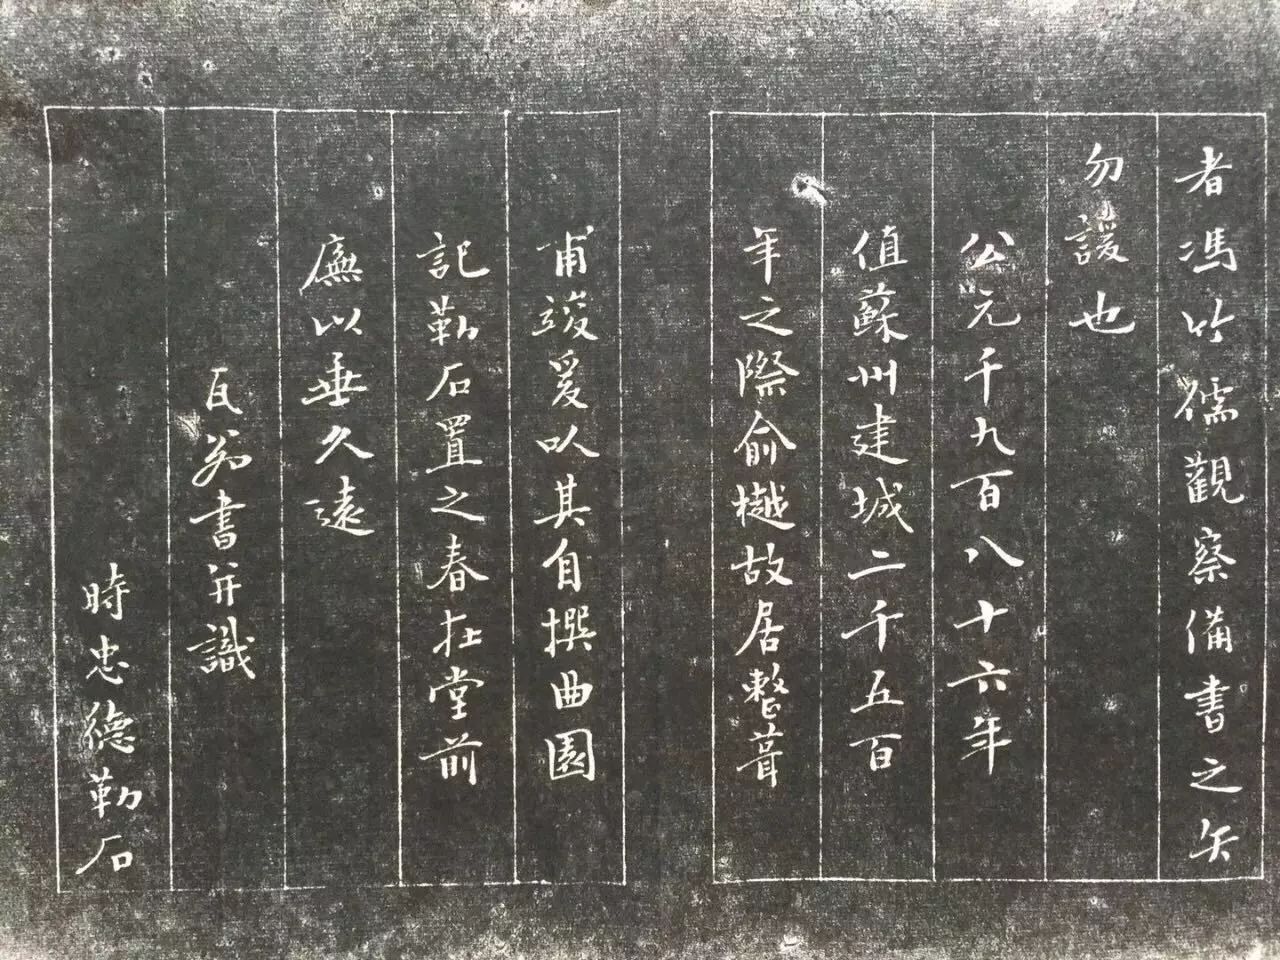 者馮竹儒觀察備書之矢
勿諼也
公元千九百八十六年
值蘇州建城二千五百
年之際俞樾故居整葺
甫竣爰以其自撰曲園
記勒石置之春在堂前
廡以垂久遠
瓦翁書并識
時忠德勒石